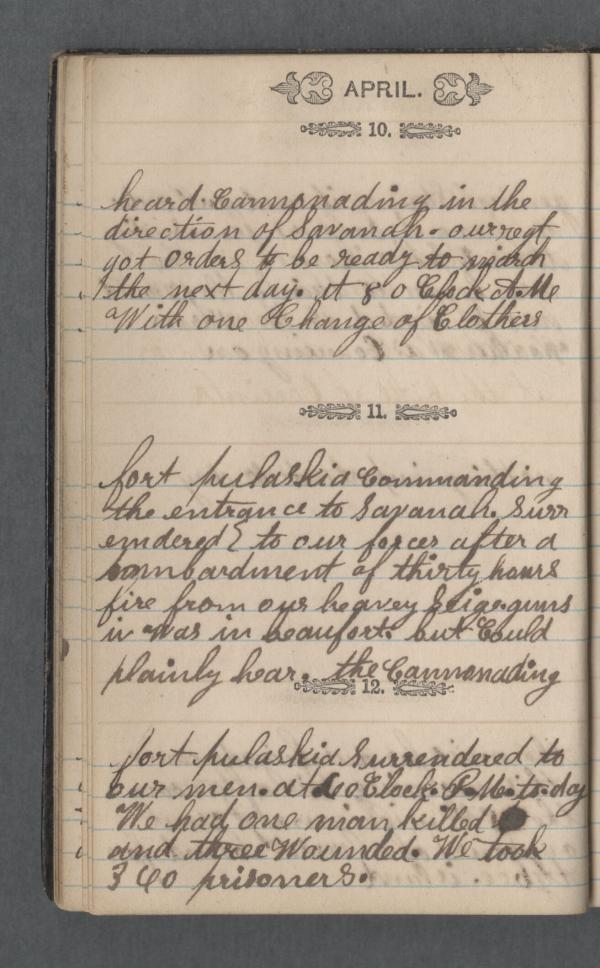 APRIL.
10.
heard Cannonading in the
direction of Savanah. our regt
got orders to be ready to march
the next day. at 8 o Clock A.M
With one Change of Clothers
11.
fort pulaskia Commanding
the entrance to Savanah. Surr
endered to our forces after a
bombardment of thirty hours
fire from our heavey Seige guns
was in beaufort. but Could
plainly hear. the Cannonading
12.
fort pulaskia Surrendered to
our men. at o Clock P.M. to-day
We had one man killed
and three Wounded. We took
360 prisoners.